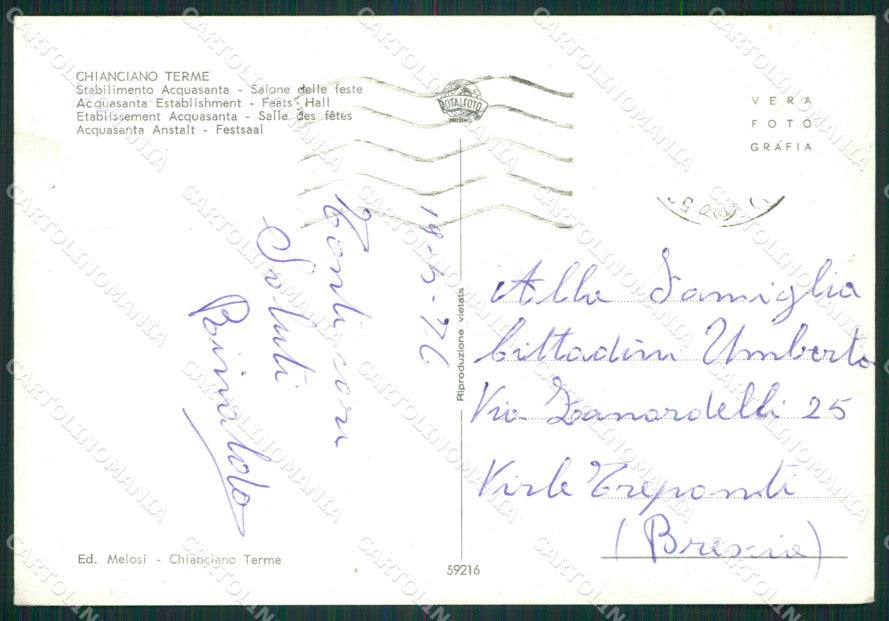 CHIANCIANO TERME
Stabilimento Acquasanta - Salone delle feste
Acquasanta Establishment - Feats Hall
Etablissement Acquasanta - Salle des fêtes
Acquasanta Anstalt - Festsaal
TOTALFOTO
VERA
FOTO
GRAFIA
19-5-76
Tanti cari
Saluti
Rinaldo
Riproduzione vietata
Alla Famiglia
Cittadini Umberto
Via Zanardelli 25
Virle Treponti
(Brescia)
Ed. Melosi - Chianciano Terme
59216
CARTOLINOMANIA